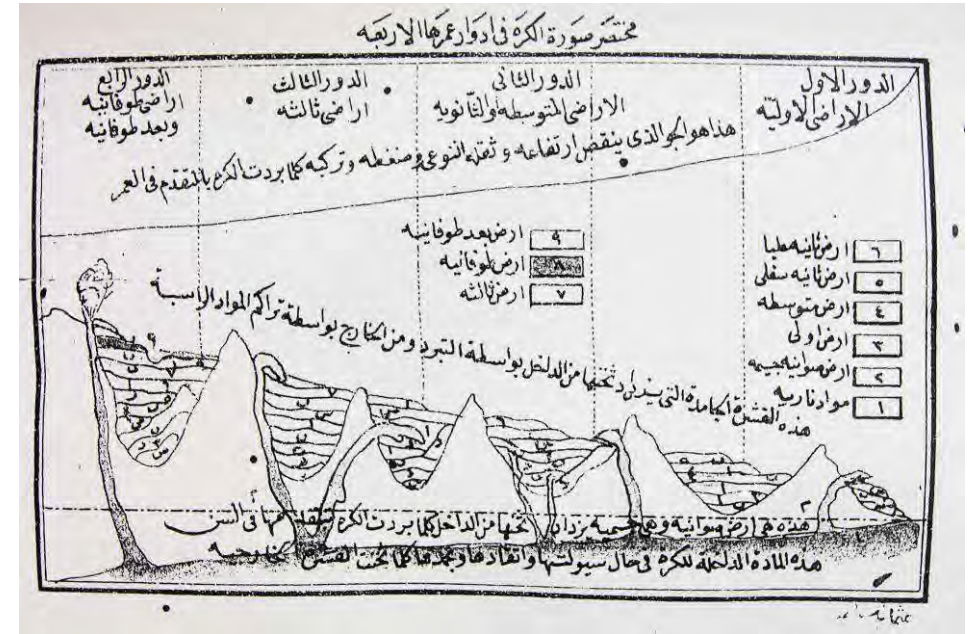 مختصر صورة الكره فى ادوار عمرها الاربعه
الدور الاول
الاراضى الاوليه
الدور الثانى
الاراضى المتوسطه والثانويه
الدور الثالث
اراضى ثالثه
الدور الرابع
اراضى طوفانيه
وبعد طوفانيه
هذا هو الجو الذى ينقض ارتفاعه وثقله النوعى وضغطه وتركبه كما بردت الكره بالتقدم فى العمر
٦ ارض ثانيه عليا
٥ ارض ثانيه سفلى
٤ ارض متوسطه
٣ ارض اولى
٢ ارض صوانيه
١ مواد ناريه
٩ ارض بعد طوفانيه
٨ ارض طوفانيه
٧ ارض ثالثه
هذه القشرة الجامدة التى يزداد ثخنها من الداخل بواسطة التبرد ومن الخارج بواسطة تراكم المواد الراسبة
هذه هى ارض صوانيه وهى يزداد ثخنها من الداخل كما بردت الكره فى السن
هذه المادة الداخلة للكره فى حال سيولتها واتقادها وتجمدها كما تحت القشر